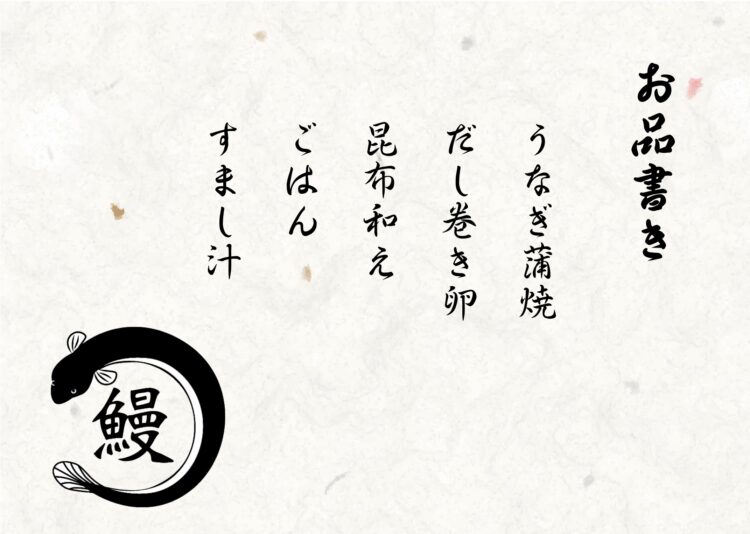 お品書き
うなぎ蒲焼
だし巻き卵
昆布和え
ごはん
すまし汁
鰻